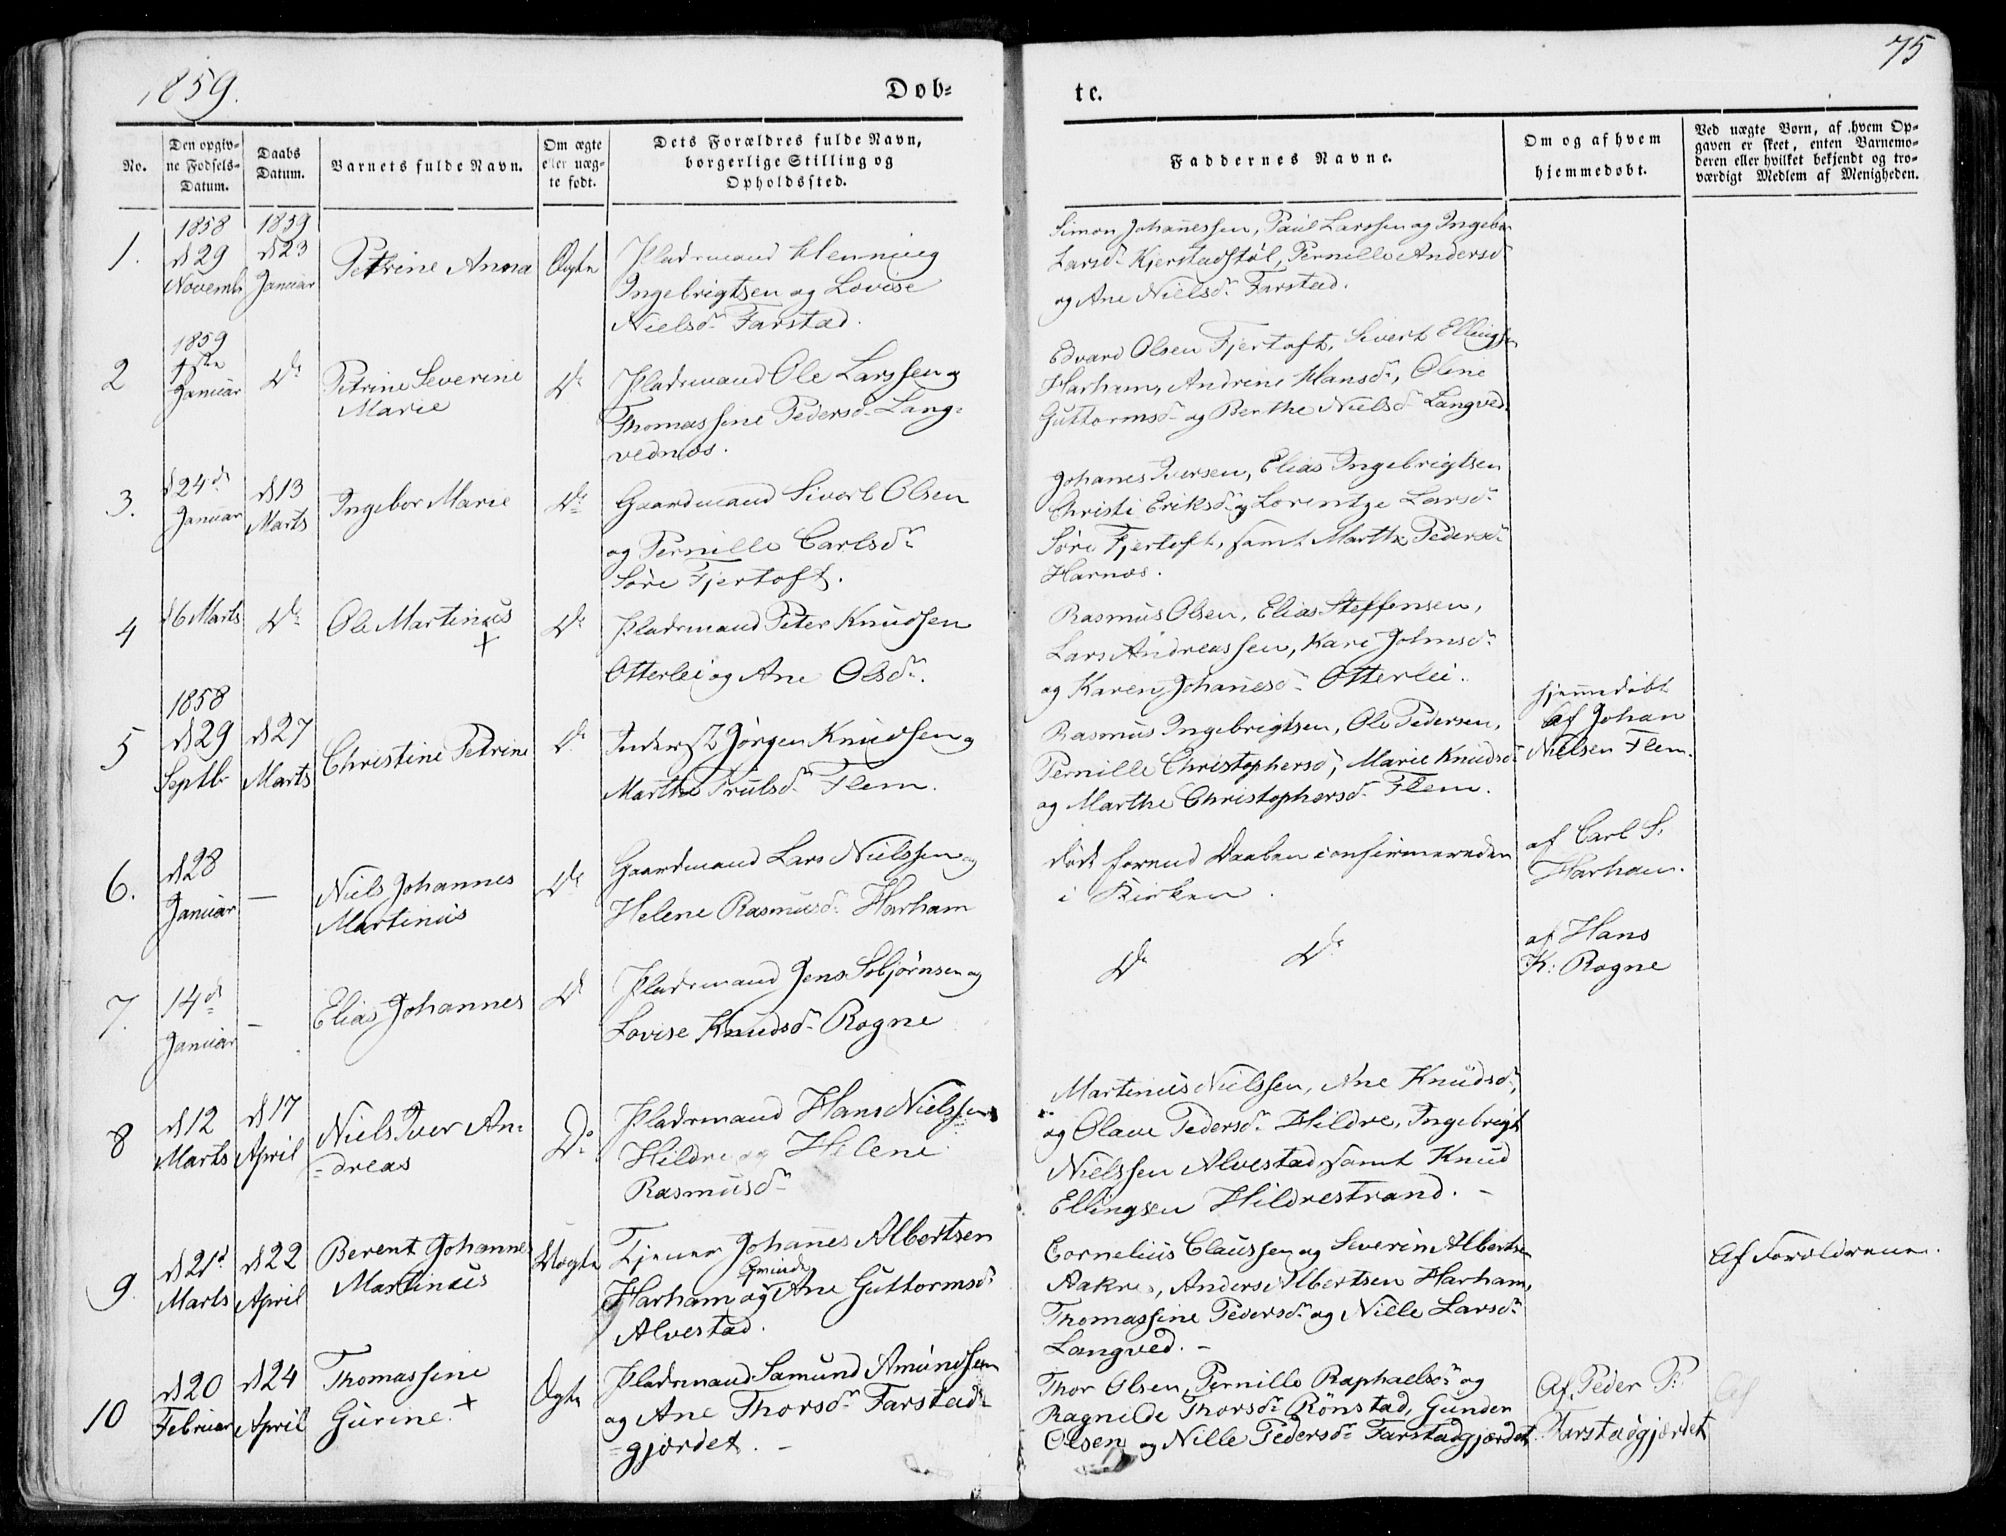 1859.
Døb=
te.
75
No.
Den opgiv=
ne Fødsels=
Datum.
Daabs
Datum.
Barnets fulde Navn.
Om ægte
eller uæg=
te født.
Dets Forældres fulde Navn,
borgerlige Stilling og
Opholdssted.
Faddernes Navne.
Om og af hvem
hjemmedøbt.
Ved uægte Børn, af hvem Op=
gaven er skeet, enten Barnemo=
deren eller hvilket bekjendt og tro=
værdigt Medlem af Menigheden.
1.
1858
d 29
Novembr
1859
d 23
Januar
Petrine Anna
Ægte
Pladsmand Henning
Ingebrigtsen og Lovise
Nielsdr Farstad.
Simon Johannessen, Paul Larssen og Ingebor
Larsdr Kjerstadstøl, Pernille Andersdr
og Ane Nielsdr Farstad.
2
1859
1ste
Januar
Do
Petrine Severine
Marie
Do
Pladsmand Ole Larssen og
Thomassine Pedersdr Lang=
vednæs.
Edvard Olsen Fjertoft, Sivert Ellingsen
Harham, Andrine Hansdr, Oline
Guttormsdr og Berthe Nielsdr Langved.
3.
d 24de
Januar
d 13
Marts
Ingebor Marie
Do
Gaardmand Sivert Olsen
og Pernille Carlsdr
Søre Fjertoft.
Johanes Iversen, Elias Ingebrigtsen
Christi Eriksdr og Lorentze Larsdr
Søre Fjertoft, samt Marthe Pedersdr
Harnæs.
4
d 6 Marts
Do
Ole Martinus
+
Do
Pladsmand Peter Knudsen
Otterlei og Ane Olsdr.
Rasmus Olsen, Elias Steffensen,
Lars Andreassen, Kari Johnsdr
og Karen Johanesdr Otterlei.
5
1858
d 29
Septbr
d 27
Marts
Christine Petrine
Do
Inderst Jørgen Knudsen og
Marthe Trulsdr Flem.
Rasmus Ingebrigtsen, Ole Pedersen,
Pernille Christophersdr, Marie Knudsdr
og Marthe Christophersdr Flem.
hjemmedøbt
af Johan
Nielsen Flem.
6.
d 28
Januar
—
Niels Johannes
Martinus
Do
Gaardmand Lars Nielssen og
Helene Rasmusdr Harham
død forend Daaben confirmereden
i Kirken.
af Carl S:
Harham.
7.
14de
Januar
—
Elias Johannes
Do
Pladsmand Jens Sobjørnsen og
Lovise Knudsdr Rogne
Do Do
af Hans
K: Rogne
8
d 12
Marts
d 17
April
Niels Iver An=
=dreas
Do
Pladsmand Hans Nielssen
Hildre og Helene
Rasmusdr
Martinus Nielssen, Ane Knudsdr,
og Olave Pedersdr Hildre, Ingebrigt
Nielssen Alvestad samt Knud
Ellingsen Hildrestrand. –
9.
d 21de
Marts
d 22
April
Berent Johannes
Martinus
Uægte
Tjener Johanes Albertsen
Harham og Qvinde Ane Guttormsdr
Alvestad.
Cornelius Claussen og Severin Albertsen
Aakre, Anders Albertsen Harham,
Thomassine Pedersdr og Nille Larsdr
Langved. –
Af Forældrene.
10
d 20
Februar
d 24
April
Thomassine
Gurine. +
Ægte
Pladsmand Samund Amundsen
og Ane Thorsdr Farstad=
=gjærdet. –
Thor Olsen, Pernille Raphaelsdr og
Ragnilde Thorsdr Rønstad, Gunder
Olsen og Nille Pedersdr Farstadgjærdet
Af Peder P:
Farstadgjærdet